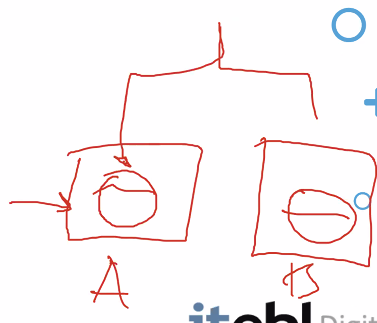 A B
itebl Digit